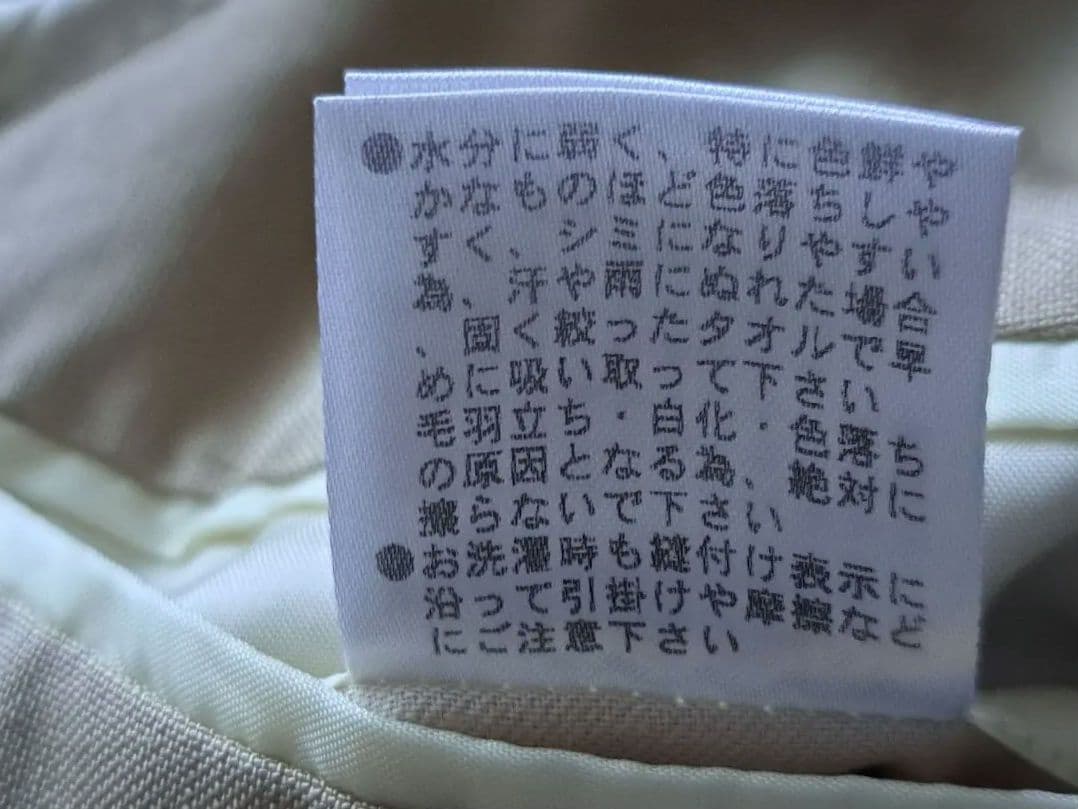 ●水分に弱く、特に色鮮や
かなものほど色落ちしや
すく、シミになりやすい
為、汗や雨にぬれた場合
、固く絞ったタオルで早
めに吸い取って下さい
毛羽立ち・白化・色落ち
の原因となる為、絶対に
擦らないで下さい
●お洗濯時も縫付け表示に
沿って引掛けや摩擦など
にご注意下さい